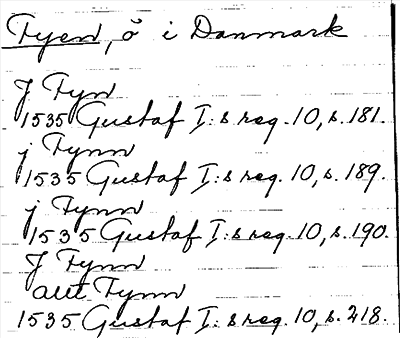 Fyen, ö i Danmark
J Fyn
1535 Gustaf I:s reg. 10, s. 181.
j Fynn
1535 Gustaf I:s reg. 10, s. 189.
j Fynn
1535 Gustaf I:s reg. 10, s. 190.
J Fynn
allt Fynn
1535 Gustaf I:s reg. 10, s. 218.